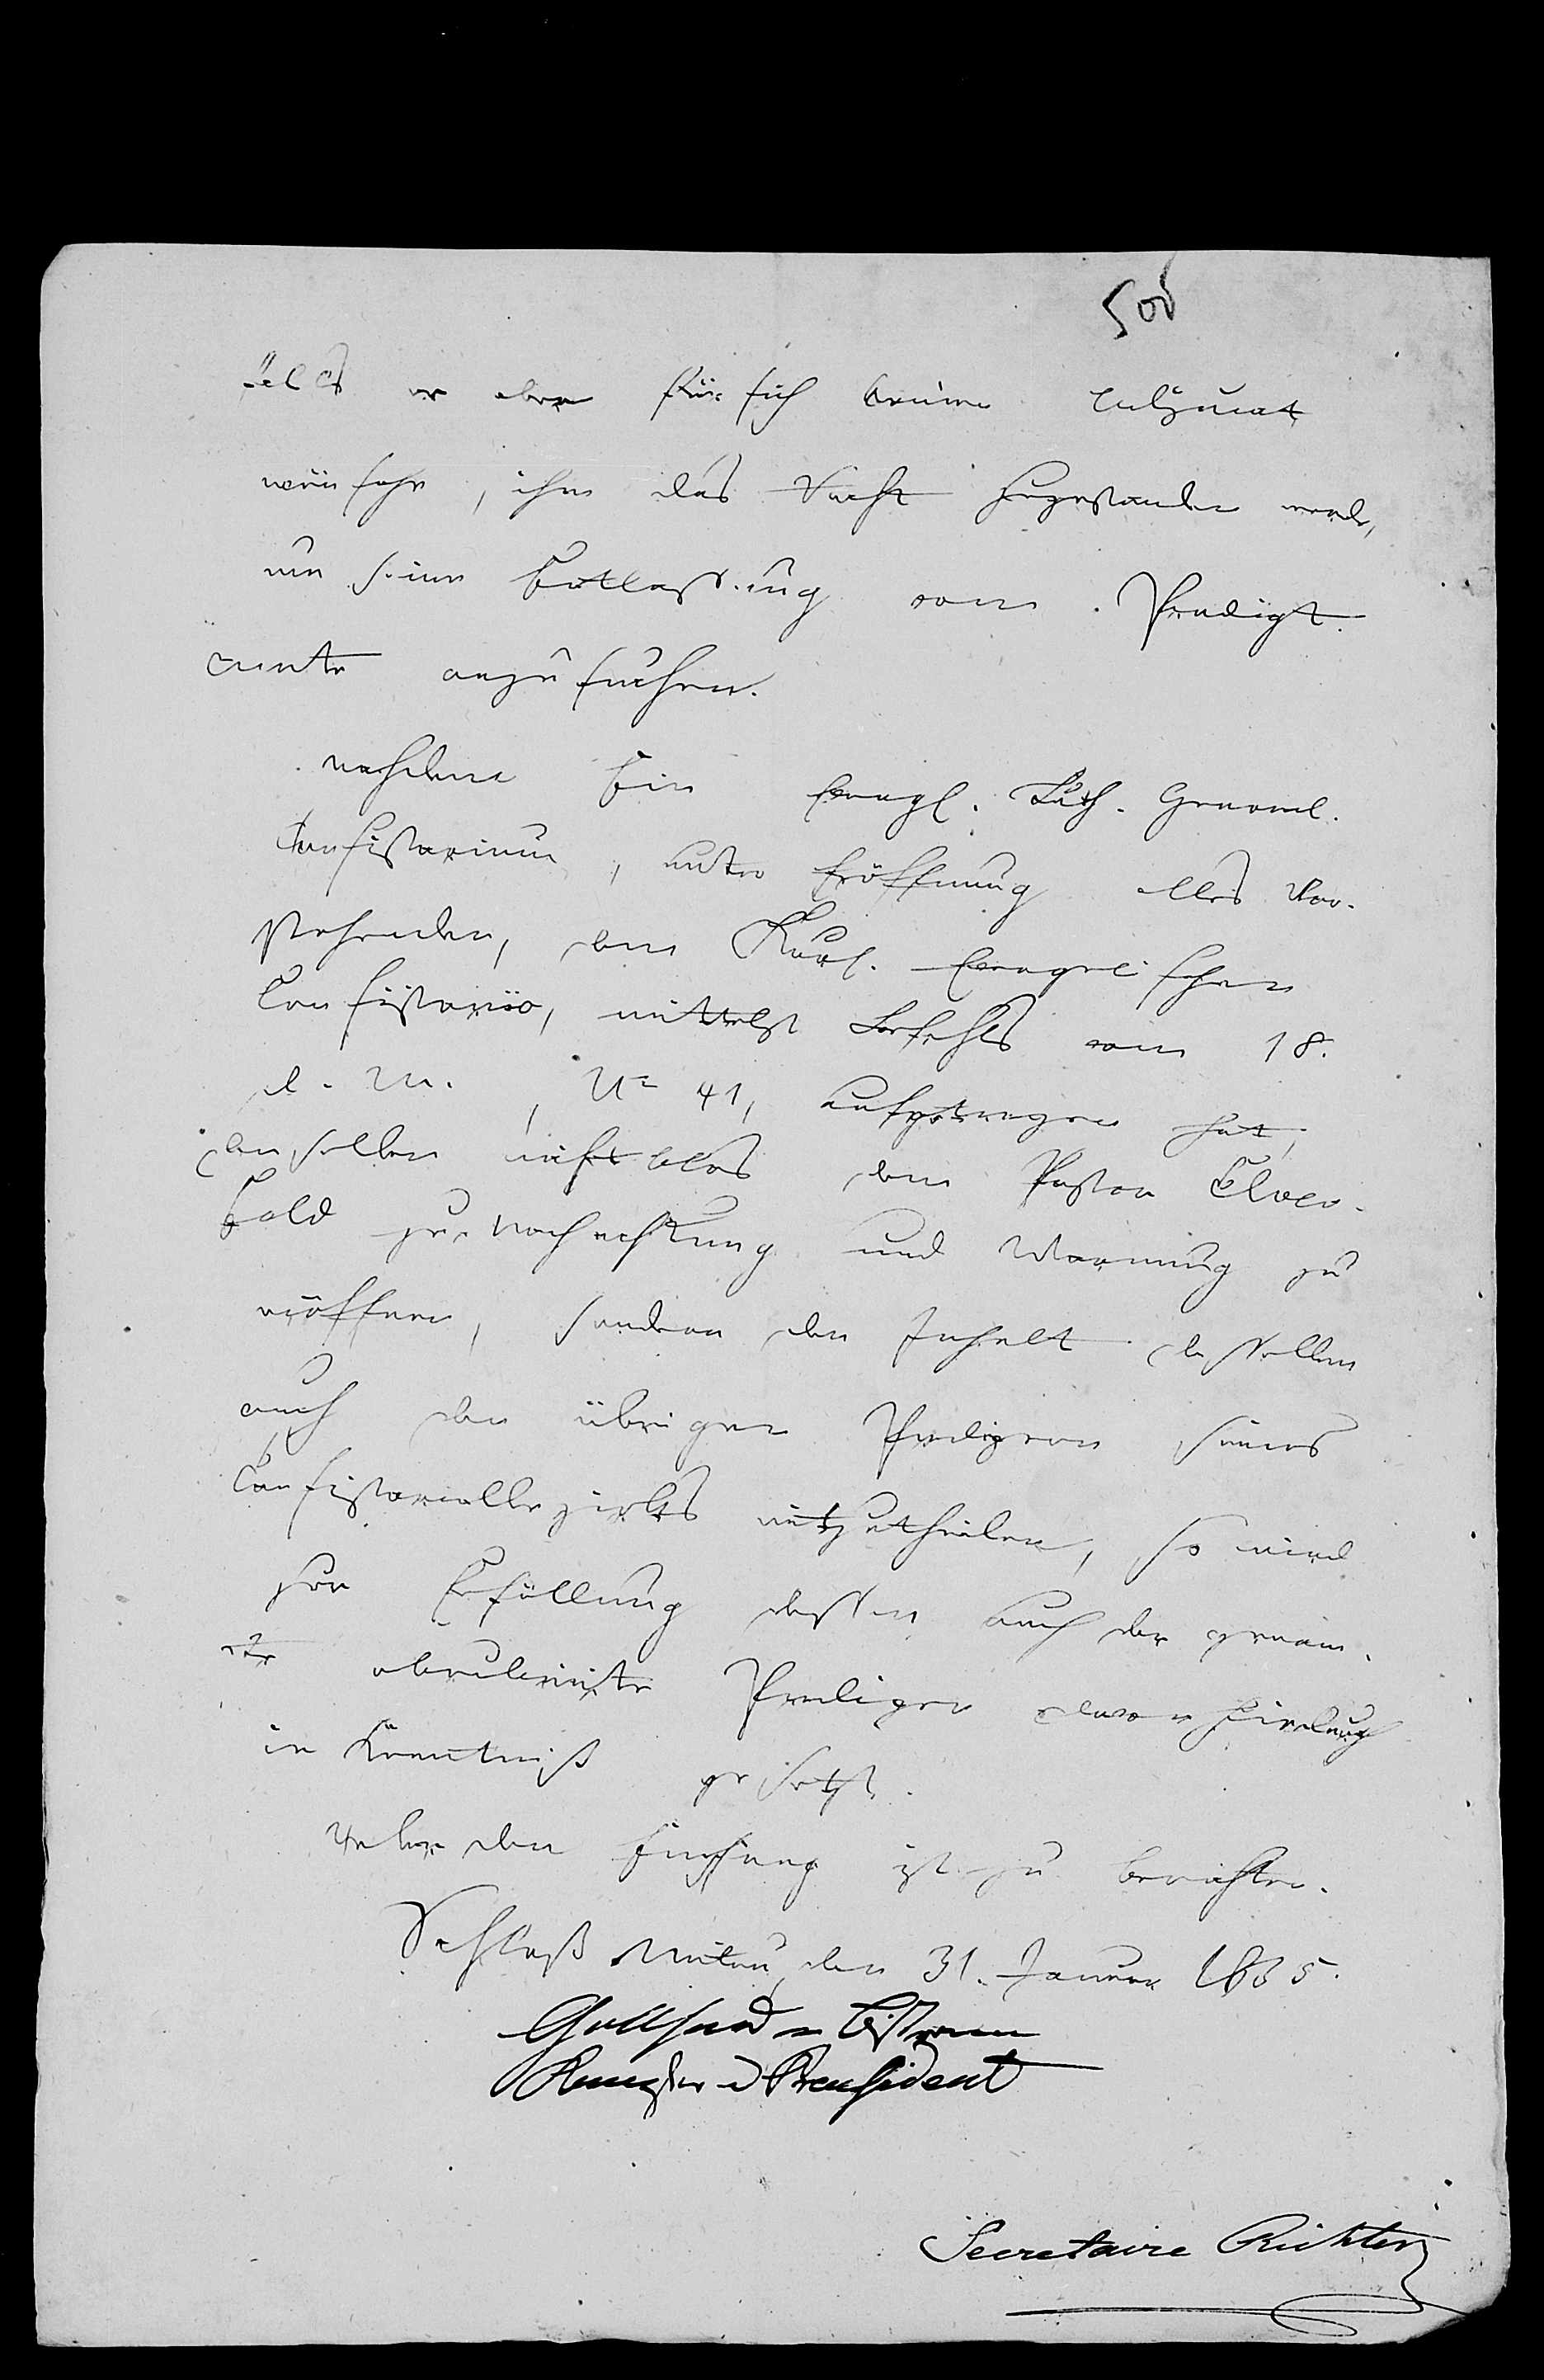 500
falls er aber für sich keinen Adjunct
wünsche, ihm das Recht zugestanden werde,
um seine Entlassung vom Predigt-
amte anzusuchen.
Nachdem Ein Evangl. Luth. General-
Consistorium, unter Eröffnung alles Vor-
stehenden, dem Kurl. Evangelischen
Consistorio, mittelst Befehls vom 18.
d. M., No 41, aufgetragen hat,
denselben nicht blos dem Pastor Elver-
feld zur Nachachtung und Warnung zu
eröffnen, sondern den Inhalt desselben
auch den übrigen Predigern seines
Consistorialbezirks mitzutheilen, so wird
zur Erfüllung dessen auch der
Prediger davon hierdurch
in Kenntniß gesetzt.
Ueber den Empfang ist zu berichten.
Schloß Mitau, den 31. Januar 1835.
Bistram
Kanzler u Præsident
Secretaire Richter